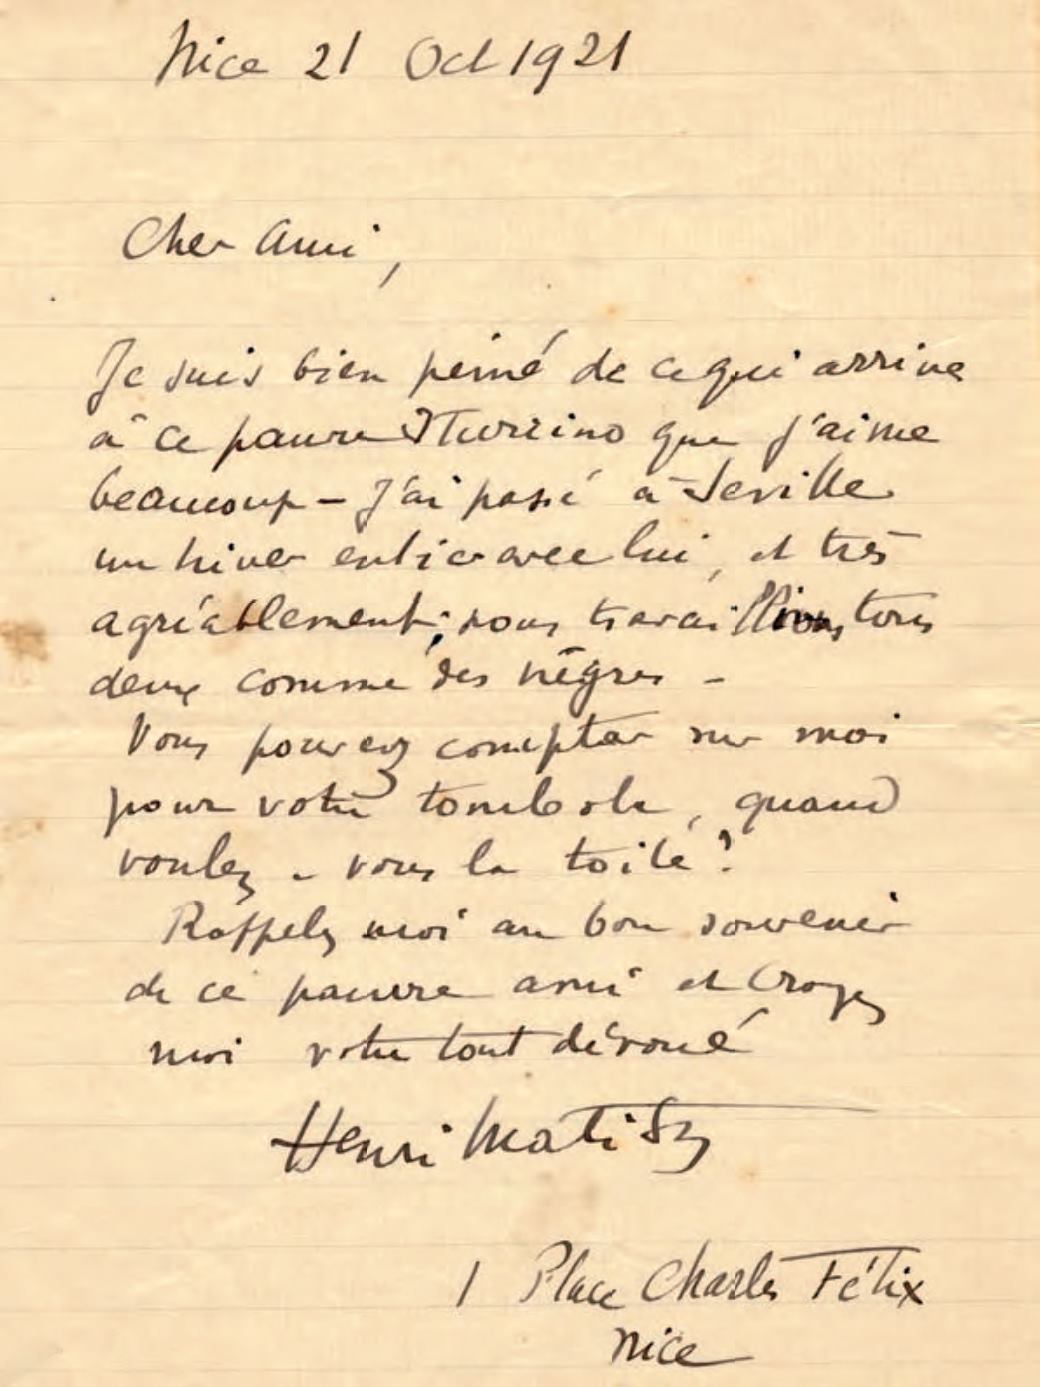 Nice 21 Oct 1921
Cher Ami,
Je suis bien peiné de ce qui arrive
à ce pauvre Iturrino que j'aime
beaucoup – J'ai passé à Seville
un hiver entier avec lui, et très
agréablement; nous travaillions tous
deux comme des nègres –
Vous pouvez compter sur moi
pour votre tombola, quand
voulez-vous la toile?
Rappelez moi au bon souvenir
de ce pauvre ami et Croyez
moi votre tout dévoué
Henri Matisse
1 Place Charles Félix
Nice